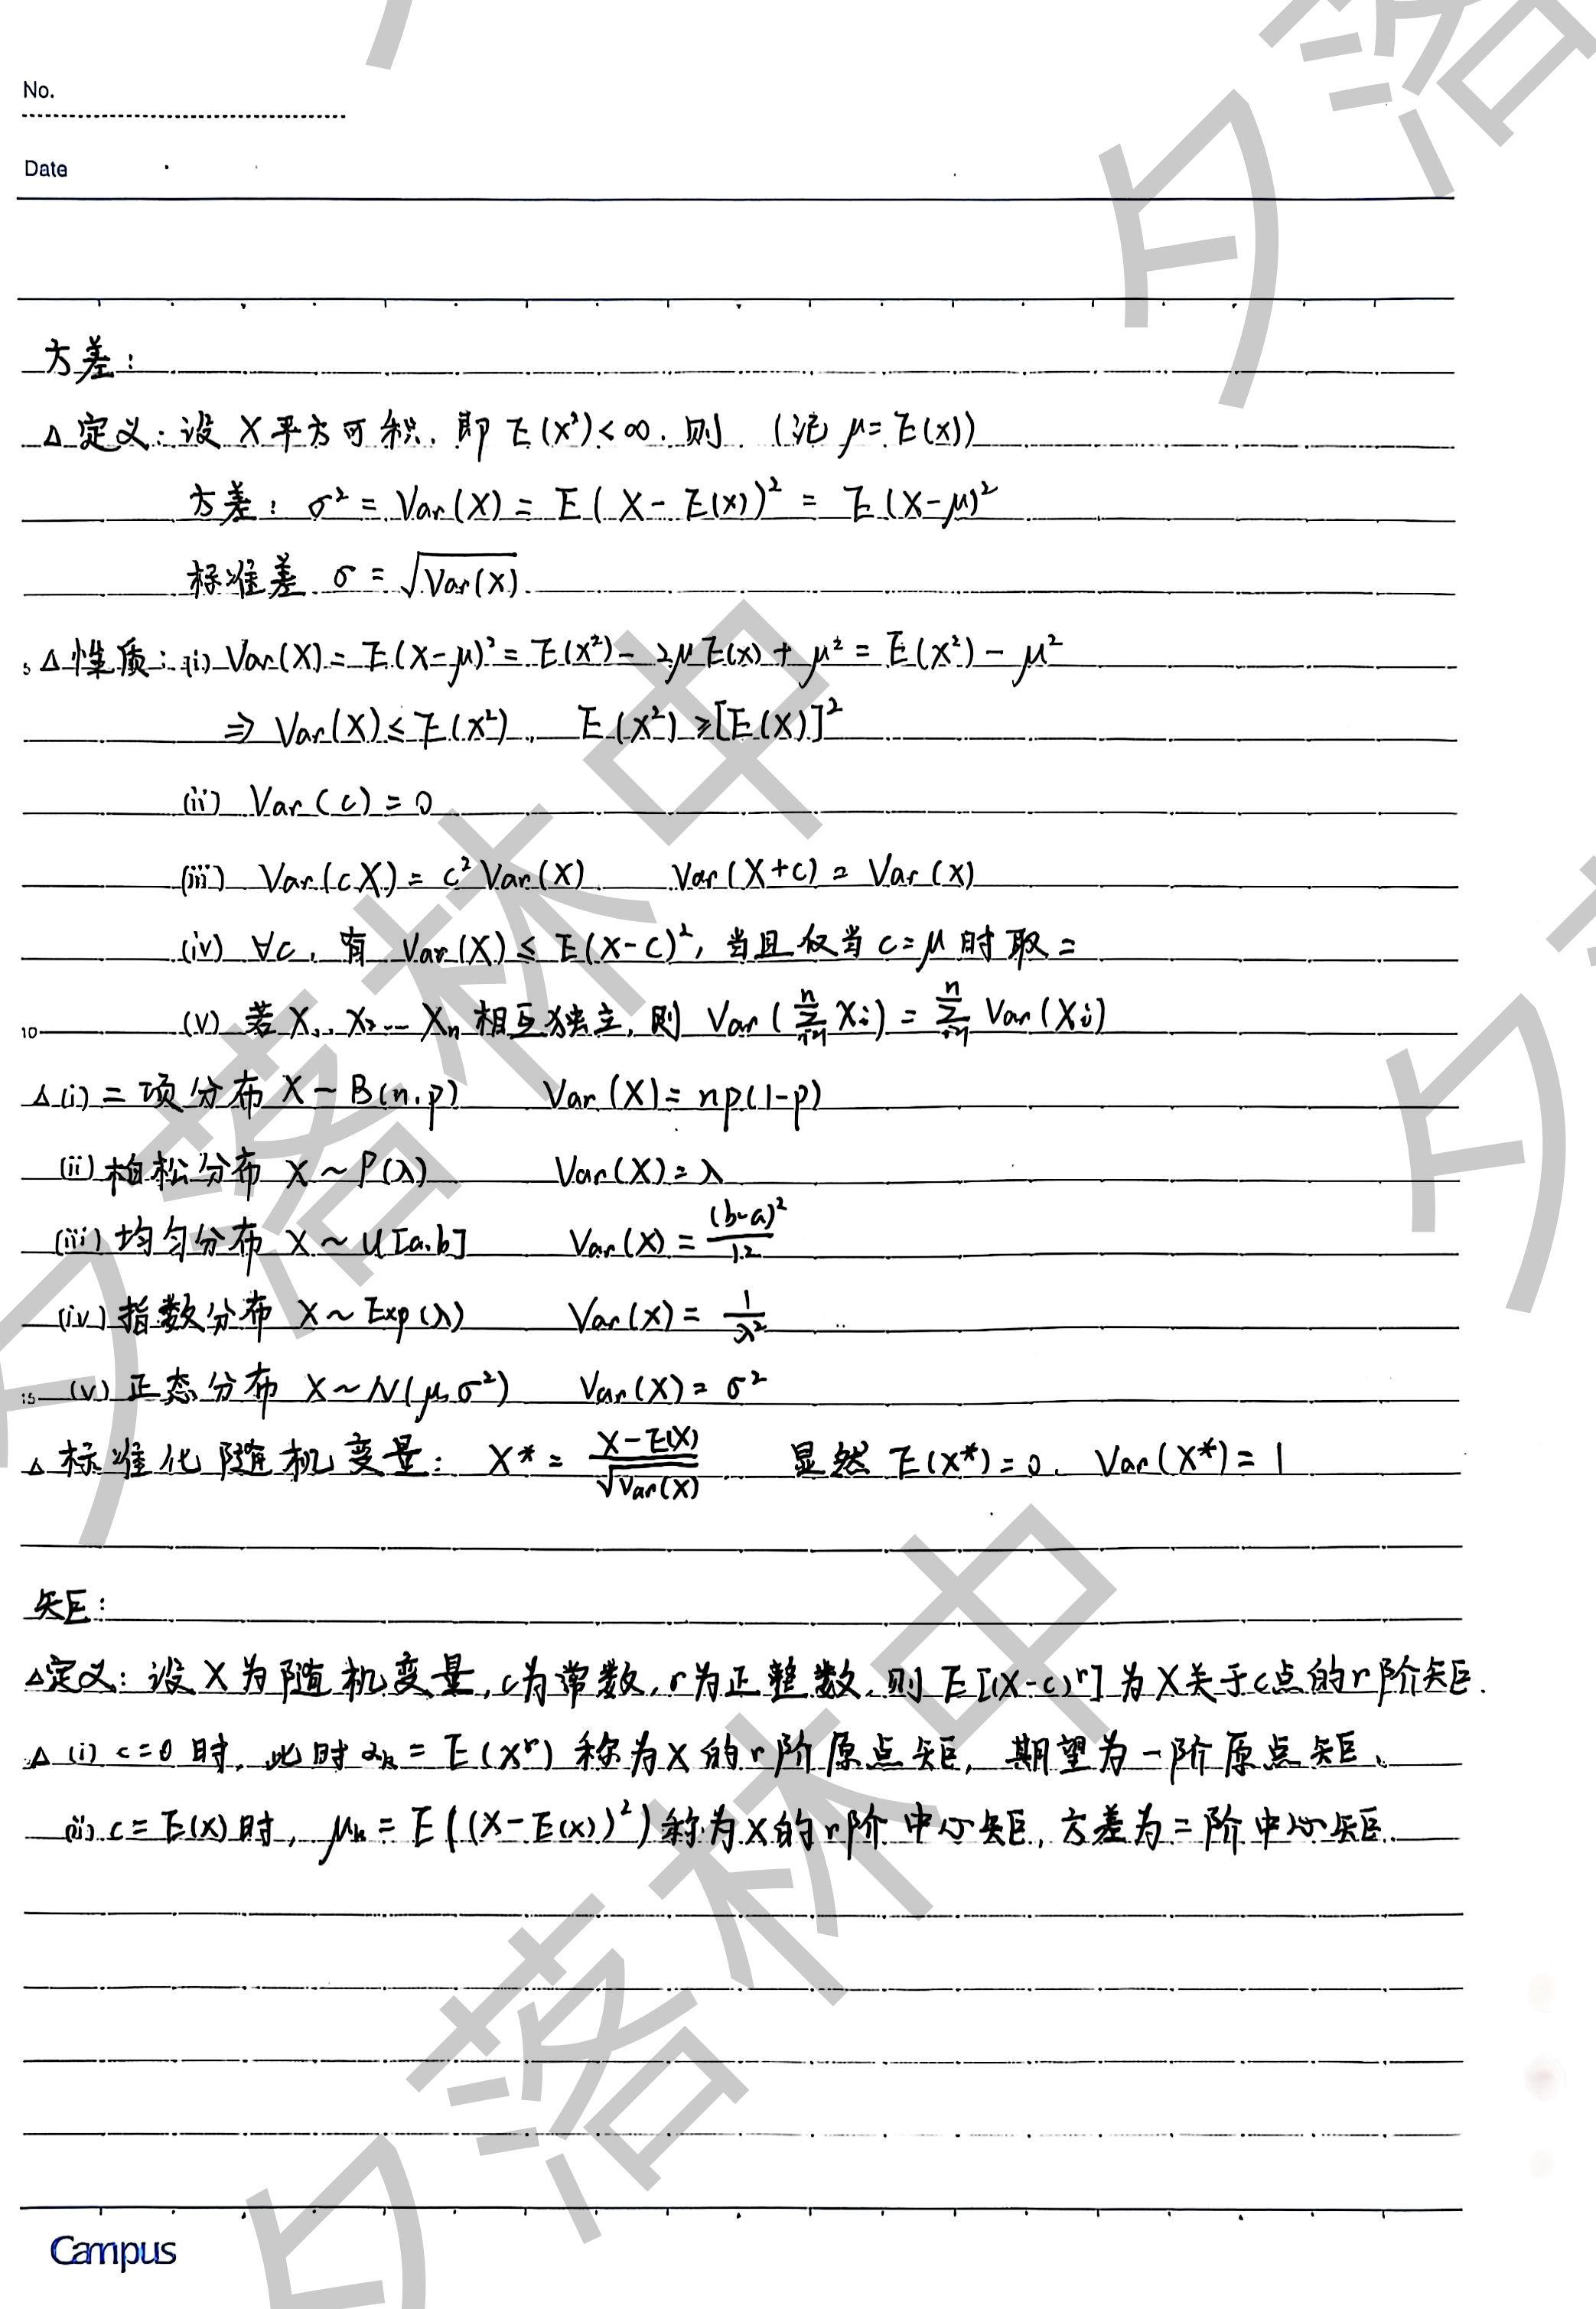 No.
Date
方差：
△定义：设 X 平方可积，即 E(X²)<∞，则 (记 μ=E(X))
方差：σ² = Var(X) = E(X-E(X))² = E(X-μ)²
标准差 σ = √Var(X)
5 △性质：(i) Var(X) = E(X-μ)² = E(X²) - 2μE(X) + μ² = E(X²) - μ²
⇒ Var(X) ≤ E(X²)， E(X²) ≥ [E(X)]²
(ii) Var(c) = 0
(iii) Var(cX) = c²Var(X) Var(X+c) = Var(X)
(iv) ∀c，有 Var(X) ≤ E(X-c)²，当且仅当 c=μ 时取 =
10 (v) 若 X₁，X₂…Xₙ 相互独立，则 Var(∑ⁿᵢ₌₁ Xᵢ) = ∑ⁿᵢ₌₁ Var(Xᵢ)
△(i) 二项分布 X~B(n,p) Var(X) = np(1-p)
(ii) 柏松分布 X~P(λ) Var(X) = λ
(iii) 均匀分布 X~U[a,b] Var(X) = (b-a)²/12
(iv) 指数分布 X~Exp(λ) Var(X) = 1/λ²
15 (v) 正态分布 X~N(μ,σ²) Var(X) = σ²
△标准化随机变量：X* = (X-E(X))/√Var(X) 显然 E(X*)=0，Var(X*)=1
矩：
△定义：设 X 为随机变量，c为常数，r为正整数，则 E[(X-c)ʳ] 为 X关于c点的r阶矩．
△(i) c=0 时，此时 αₖ = E(Xʳ) 称为 X 的 r 阶原点矩，期望为一阶原点矩、
(ii) c=E(X) 时，μₖ = E((X-E(X))²) 称为 X 的 r 阶中心矩，方差为二阶中心矩．
Campus
夕落林中
夕落林中
夕落
夕